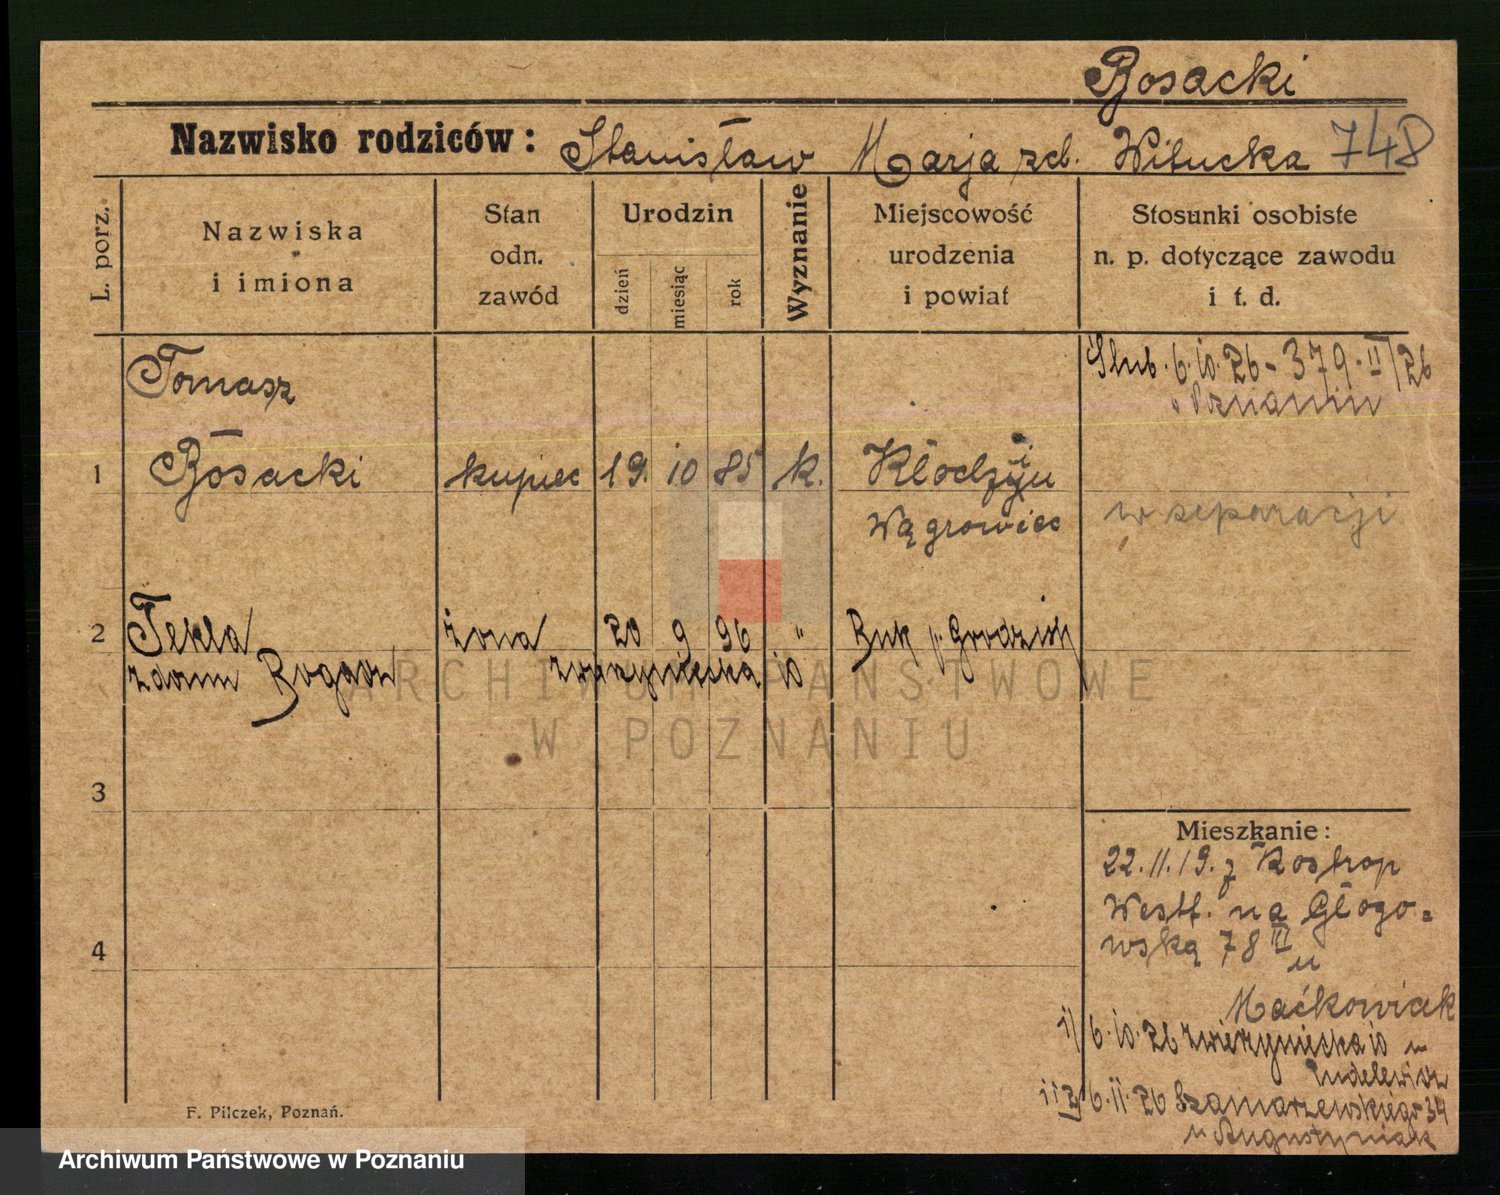 Bosacki
Nazwisko rodziców: Stanisław Marja zd. Witucka 748
L. porz.
Nazwiska i imiona
Stan odn. zawód
Urodzin
dzień
miesiąc
rok
Wyznanie
Miejscowość urodzenia i powiat
Stosunki osobiste n. p. dotyczące zawodu i t. d.
Tomasz
Ślub. 6.10.26 - 379.II/26
w Poznaniu
1 Bosacki kupiec 19. 10 85 k.
Wągrowiec
w separacji
2 Tekla żona 20 9 96 " Buk p. Grodzisk
zdom Zwierzyniecka 10
3
4
Mieszkanie:
22.11.19. z
Westf. na Głogo-
wską 78 III
u
Maćkowiak
1/ 6.10.26 Zwierzyniecka 10 u
6.11.26 Szamarzewskiego 34
u Augustyniak
F. Pilczek, Poznań.
ARCHIWUM PAŃSTWOWE
W POZNANIU
Archiwum Państwowe w Poznaniu